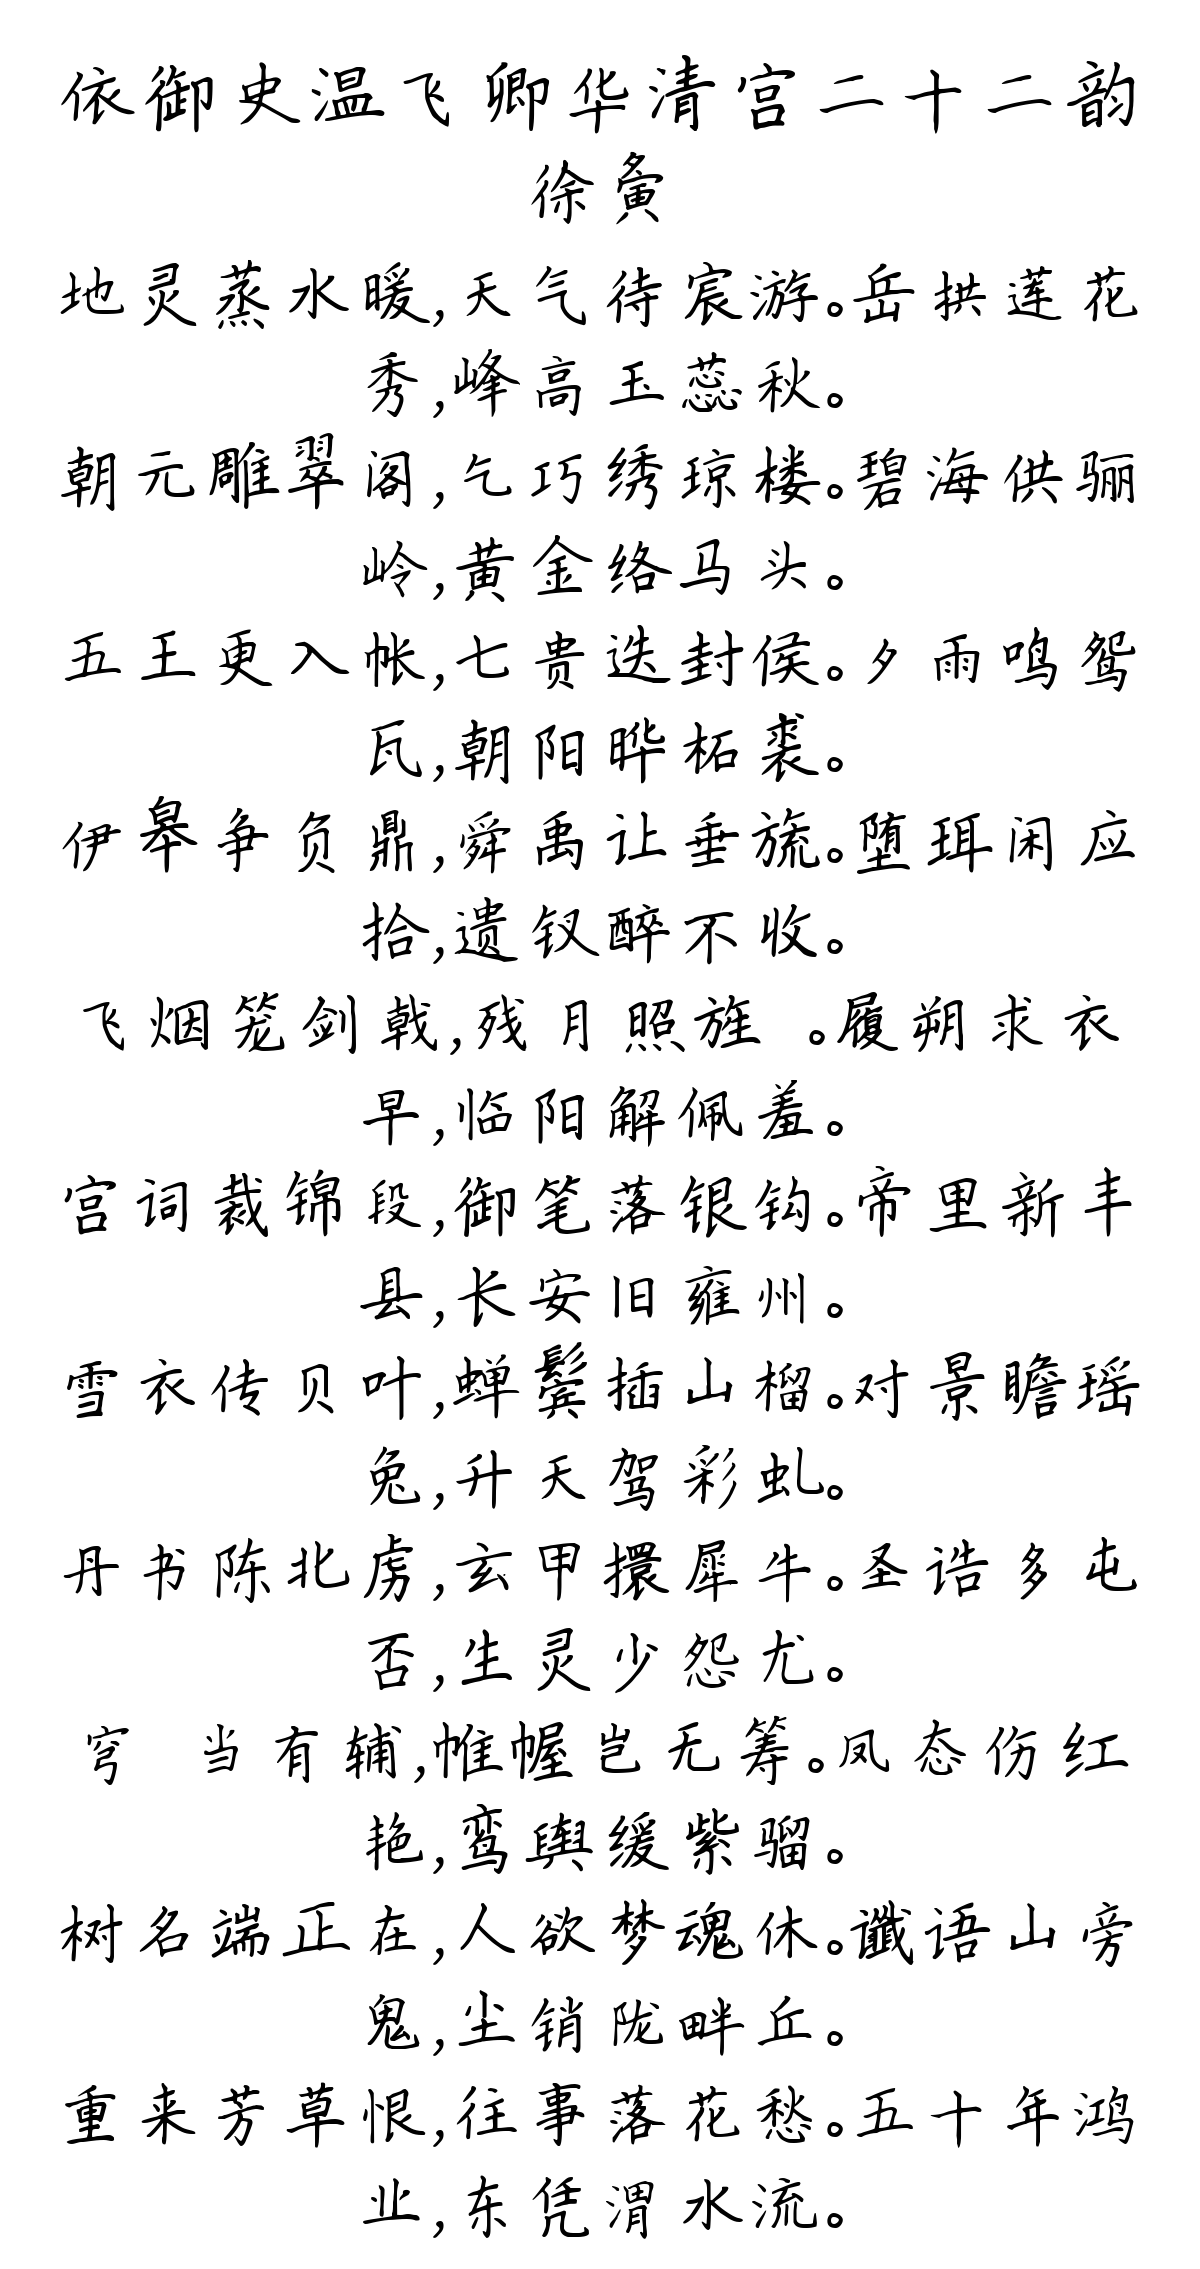 依御史温飞卿华清宫二十二韵
徐夤
地灵蒸水暖,天气待宸游。岳拱莲花
秀,峰高玉蕊秋。
朝元雕翠阁,乞巧绣琼楼。碧海供骊
岭,黄金络马头。
五王更入帐,七贵迭封侯。夕雨鸣鸳
瓦,朝阳晔柘裘。
伊皋争负鼎,舜禹让垂旒。堕珥闲应
拾,遗钗醉不收。
飞烟笼剑戟,残月照旌 。履朔求衣
早,临阳解佩羞。
宫词裁锦段,御笔落银钩。帝里新丰
县,长安旧雍州。
雪衣传贝叶,蝉鬓插山榴。对景瞻瑶
兔,升天驾彩虬。
丹书陈北虏,玄甲擐犀牛。圣诰多屯
否,生灵少怨尤。
穹 当有辅,帷幄岂无筹。凤态伤红
艳,鸾舆缓紫骝。
树名端正在,人欲梦魂休。谶语山旁
鬼,尘销陇畔丘。
重来芳草恨,往事落花愁。五十年鸿
业,东凭渭水流。